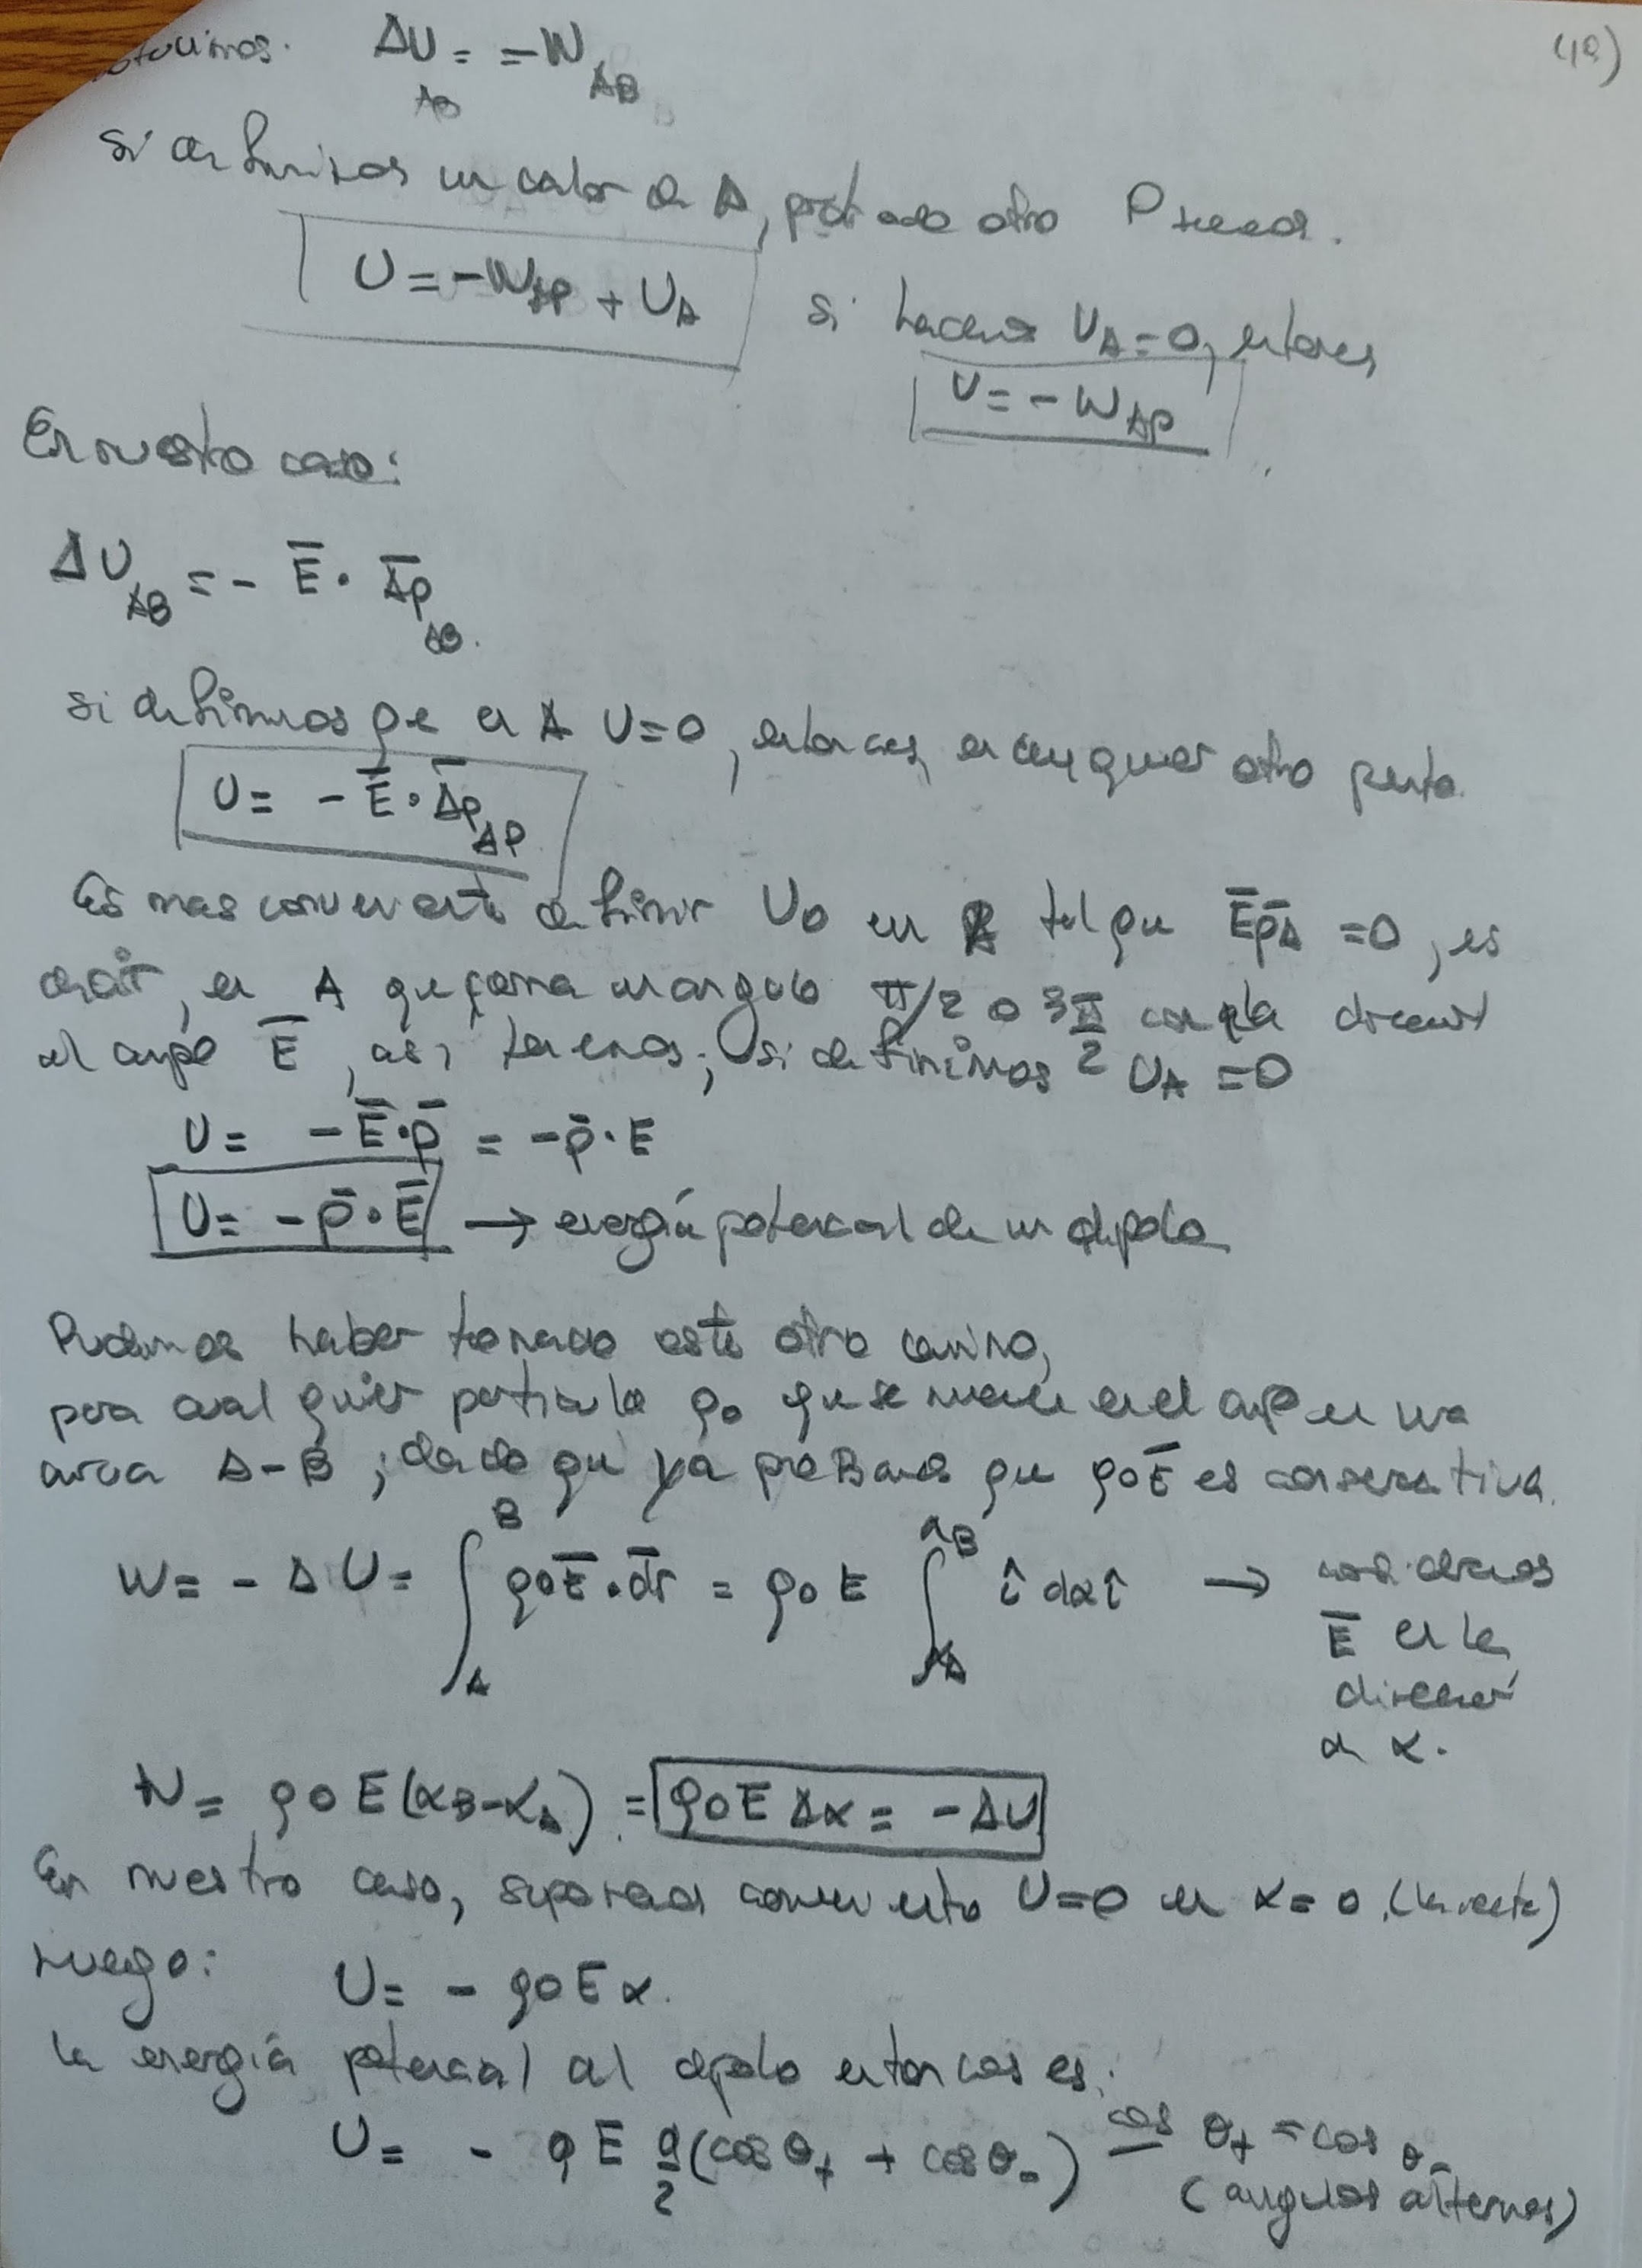 (10)
ΔU_AB = -W_AB
si definimos un valor de A, para todo otro P tenemos.
U = -W_AP + U_A
si hacemos U_A = 0, entonces
U = -W_AP
En nuestro caso:
ΔU_AB = - E̅ · Δ̅p̅_AB.
si definimos que en A U=0, entonces, en cualquier otro punto
U = - E̅ · Δ̅p_AP
Es mas conveniente definir U0 en A tal que E̅p̅_A = 0, es
decir, en A que forma un angulo π/2 o 3π/2 con la direcció
del campo E̅, así tenemos; si definimos U_A = 0
U = - E̅·p̅ = - p̅·E
U = - p̅·E̅ → energía potencial de un dipolo
Pudimos haber tomado este otro camino,
para cualquier particula q0 que se mueve en el campo en una
curva A-B ; dado que ya probamos que q0E̅ es conservativa.
W = - ΔU = ∫_A^B q0E̅·d̅r̅ = q0E ∫_xA^xB î dx î → consideramos
E̅ en la
direcció
de x.
W = q0E(xB-xA) = q0EΔx = -ΔU
En nuestro caso, suponemos conveniente U=0 en x=0. (la recta)
Luego: U = - q0Ex.
La energía potencial del dipolo entonces es:
U = - qE a/2 (cos θ+ + cos θ-) cos θ+ = cos θ-
(angulos alternos)